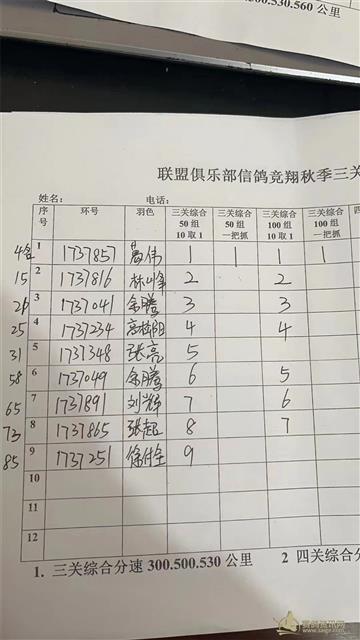 .500.530.560 公里
联盟俱乐部信鸽竞翔秋季三关
姓名： 电话：
序号 环号 羽色 三关综合 50 组 10 取 1 三关综合 50 组 一把抓 三关综合 100 组 10 取 1 三关综合 100 组 一把抓 四
1 1737857 伟 1 1 1 1
15 2 1737816 林山峰 2 2
3 1737041 余腾 3 3
25 4 1737234 4 4
31 5 1737348 张亮 5
58 6 1737049 余腾 6 5
65 7 1737891 刘辉 7 6
73 8 1737865 张超 8 7
85 9 1737251 徐付全 9
10
11
12
1. 三关综合分速 300.500.530 公里 2 四关综合分